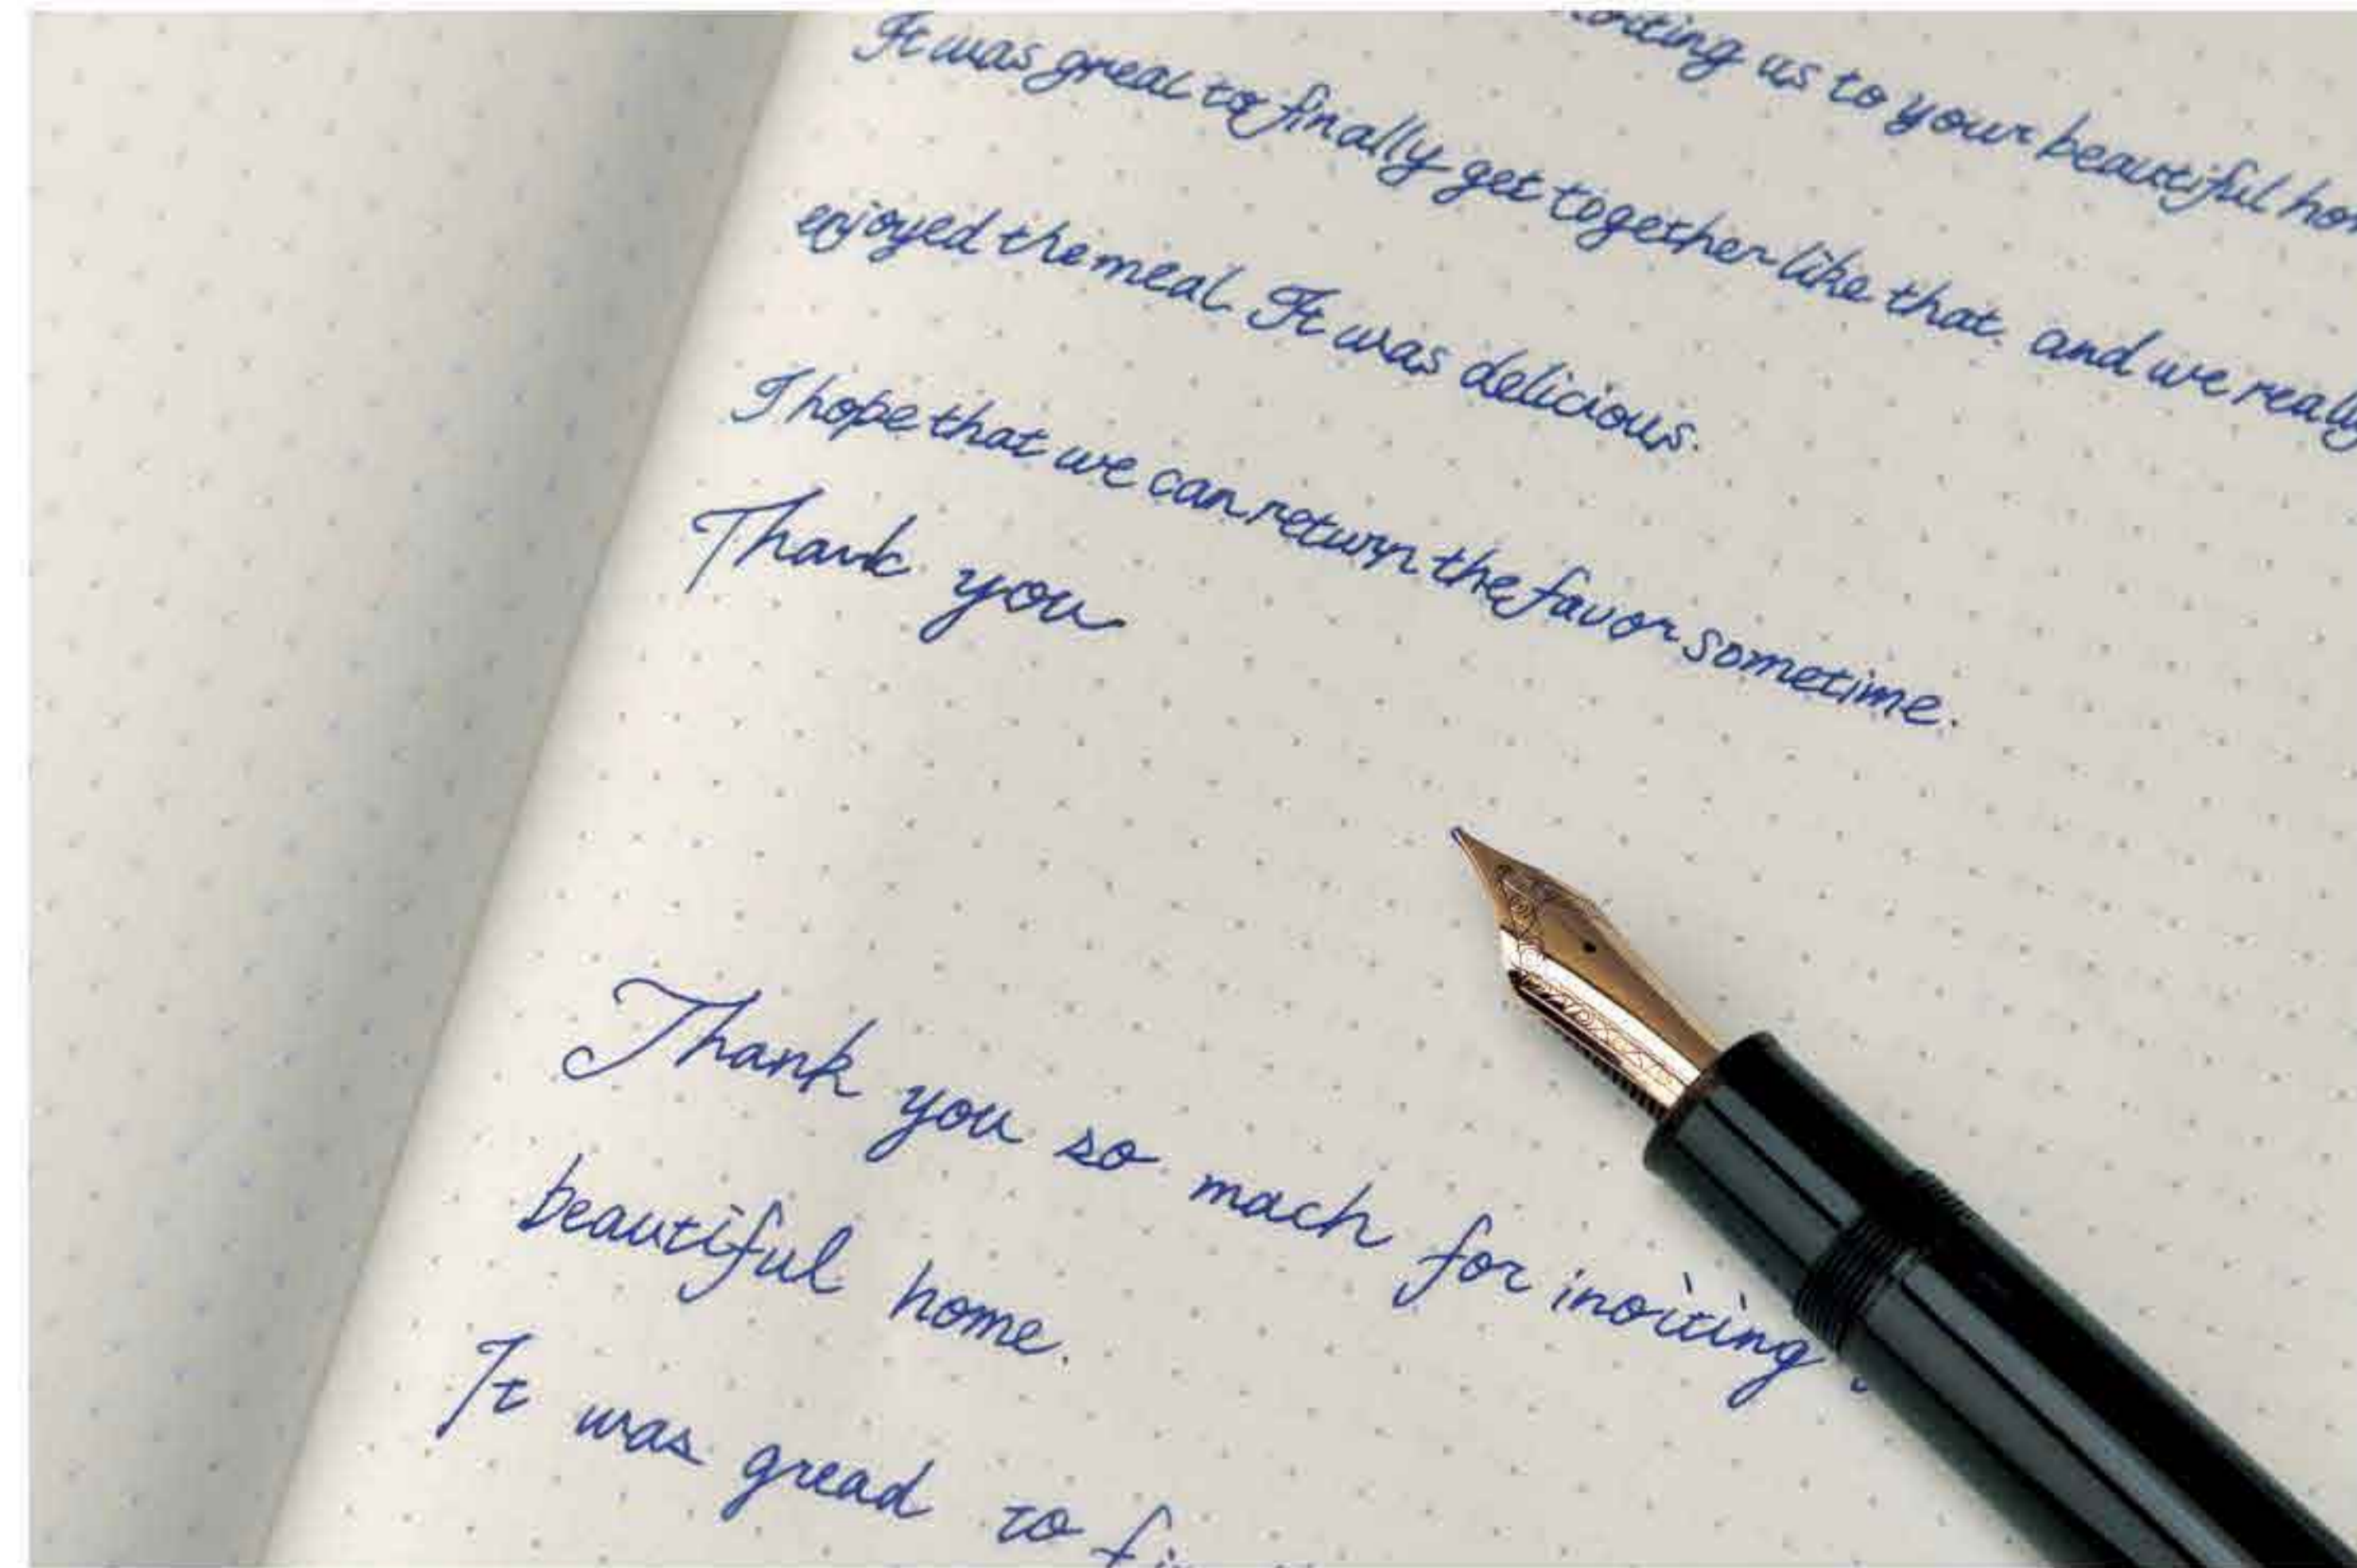 us to your beautiful
It was great to finally get together like that. and we really
enjoyed the meal. It was delicious.
I hope that we can return the favor sometime.
Thank you
Thank you so mach for inoiting
beautiful home.
It was gread to